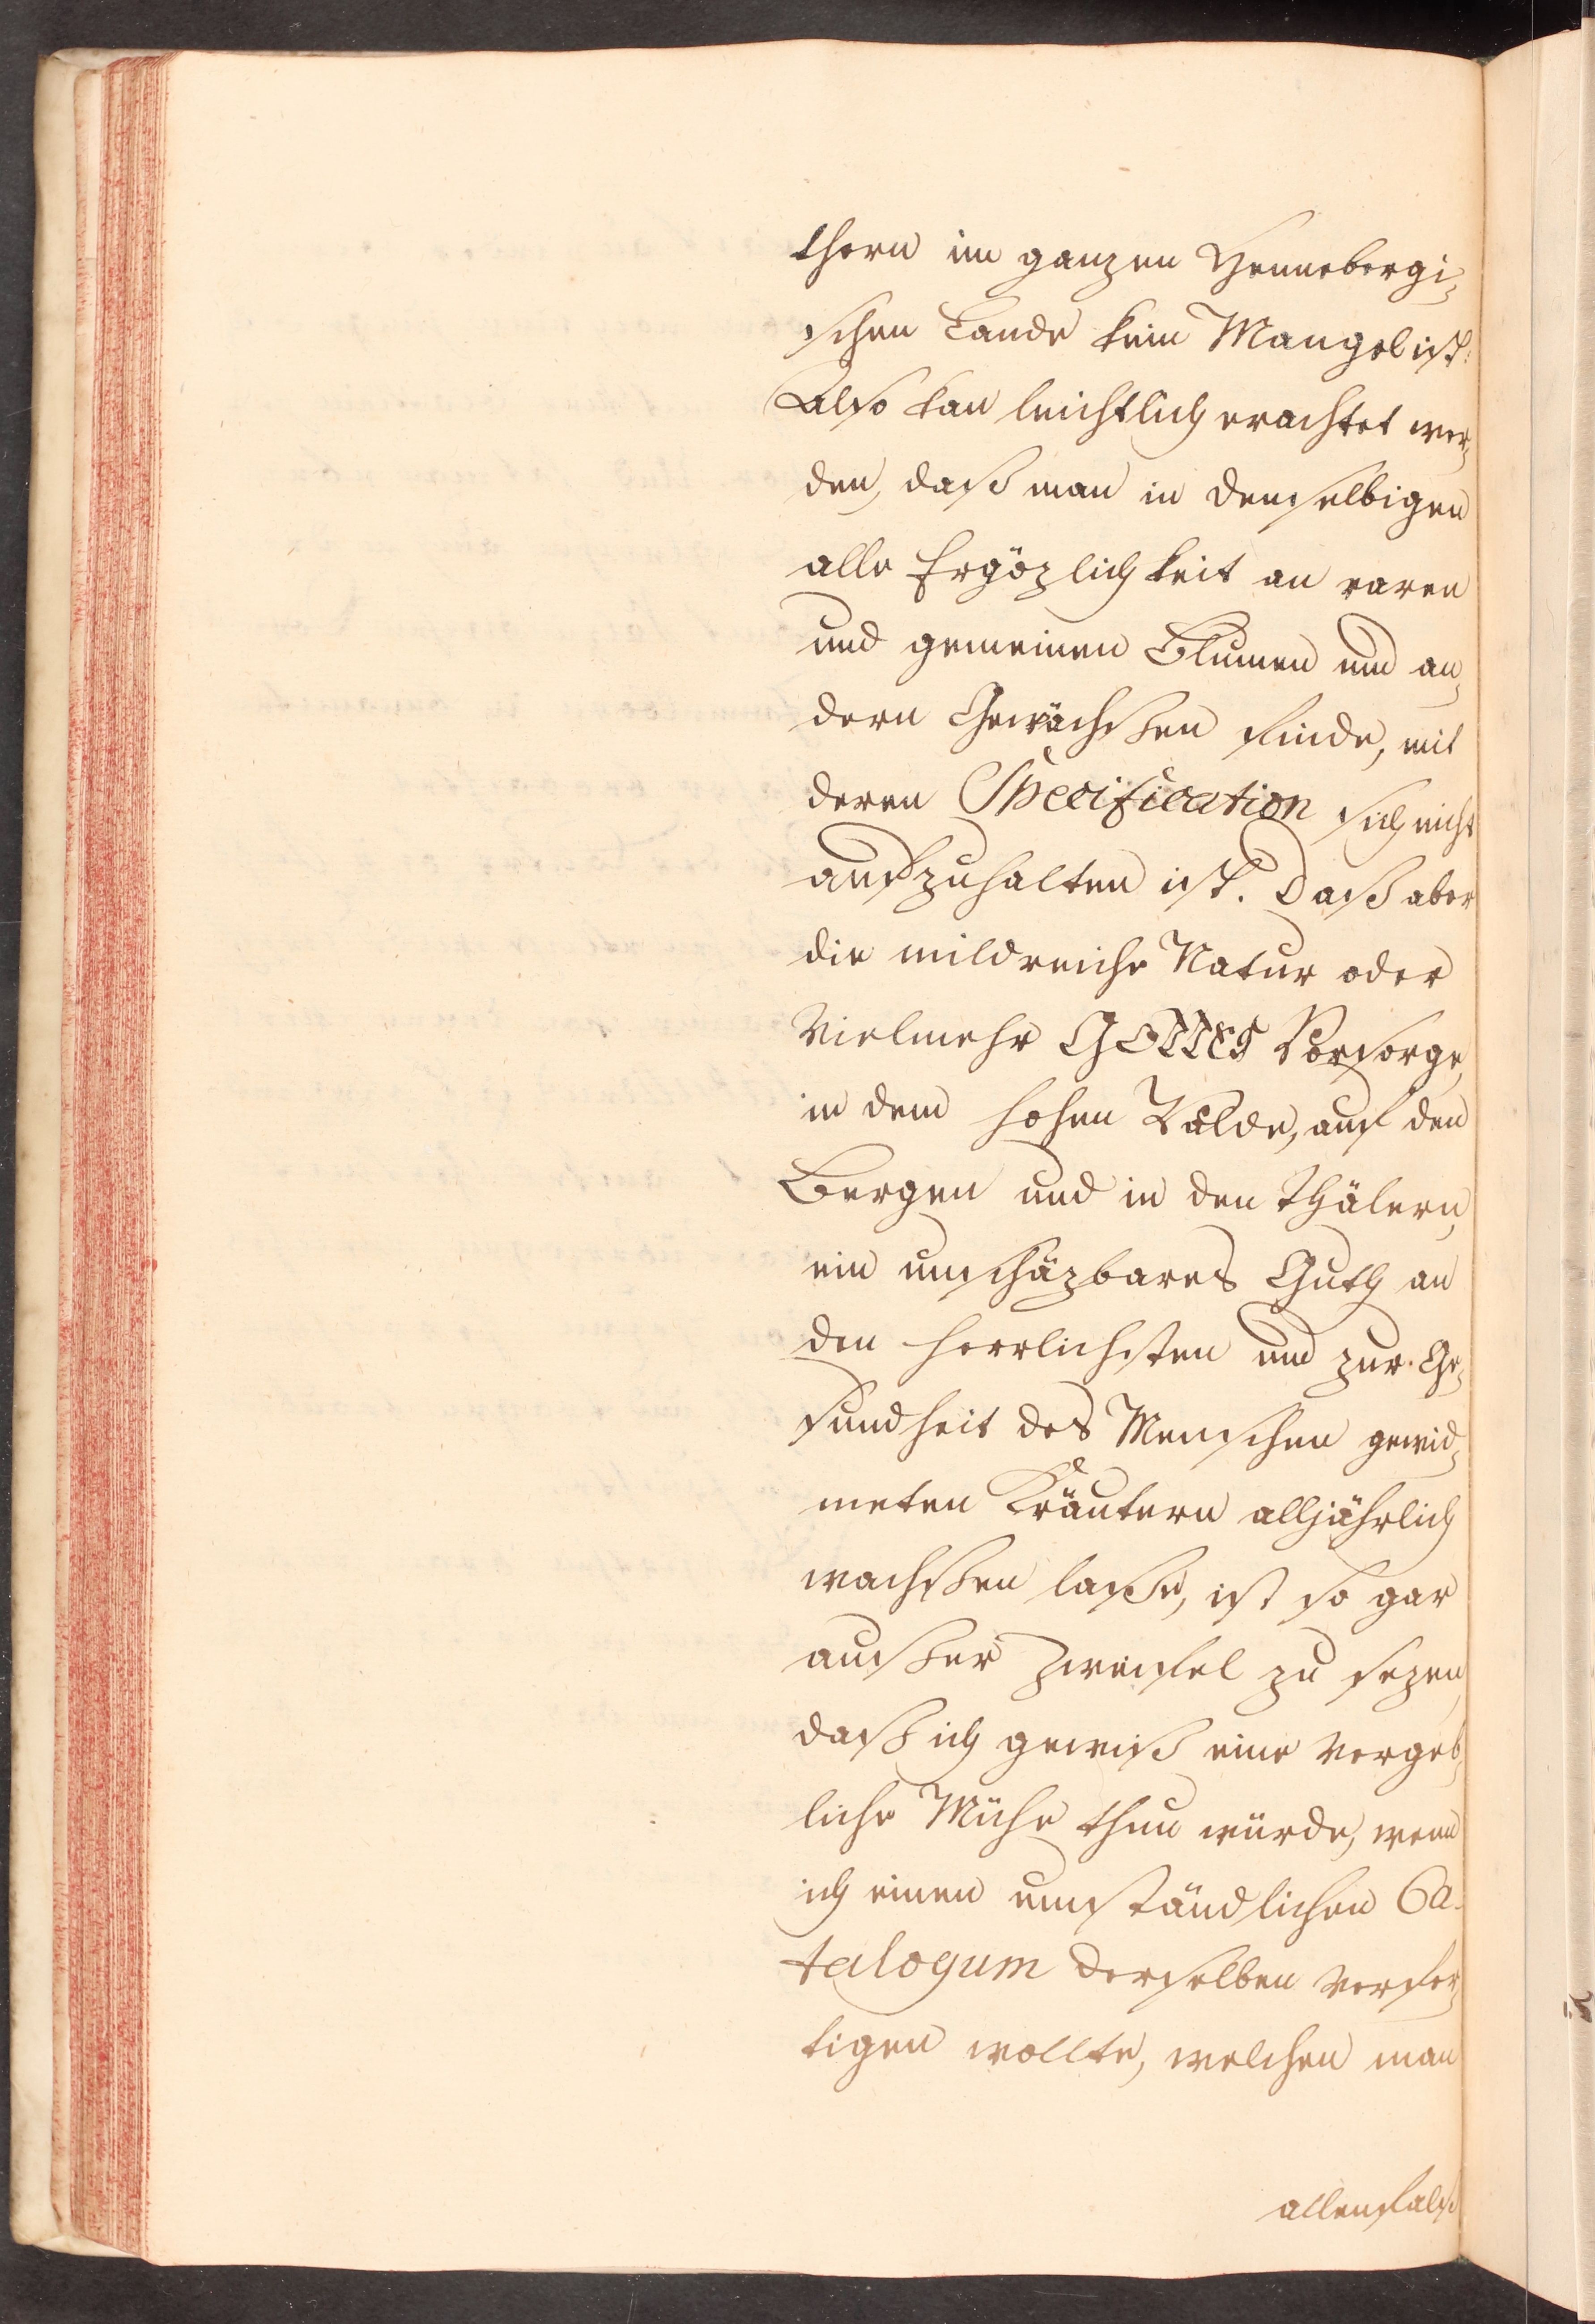 thern im ganzen Hennebergi-
schen Lande kein Mangel ist.
Also kan leichtlich erachtet wer-
den, daß man in demselbigen
alle Ergözlichkeit an raren
und gemeinen Blumen und an-
dern Gewächßen finde, mit
deren Specification sich nicht
aufzuhalten ist. Daß aber
die mildreiche Natur oder
vielmehr GOTTES Vorsorge,
in dem hohen Walde, auf den
Bergen und in den Thälern,
ein unschäzbares Guth an
den herrlichsten und zur Ge-
sundheit des Menschen gewid-
meten Kräutern alljährlich
wachßen laße, ist so gar
außer Zweifel zu sezen,
daß ich gewiß eine vergeb-
liche Mühe thun würde, wenn
ich einen umständlichen Ca-
talogum derselben verfer-
tigen wollte, welchen man
allenfals